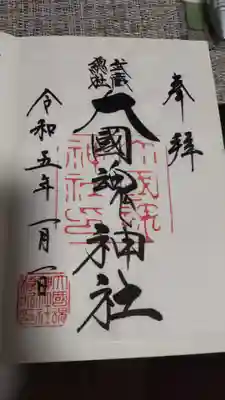 奉拝
武蔵
総社
大國魂神社
令和五年一月一日